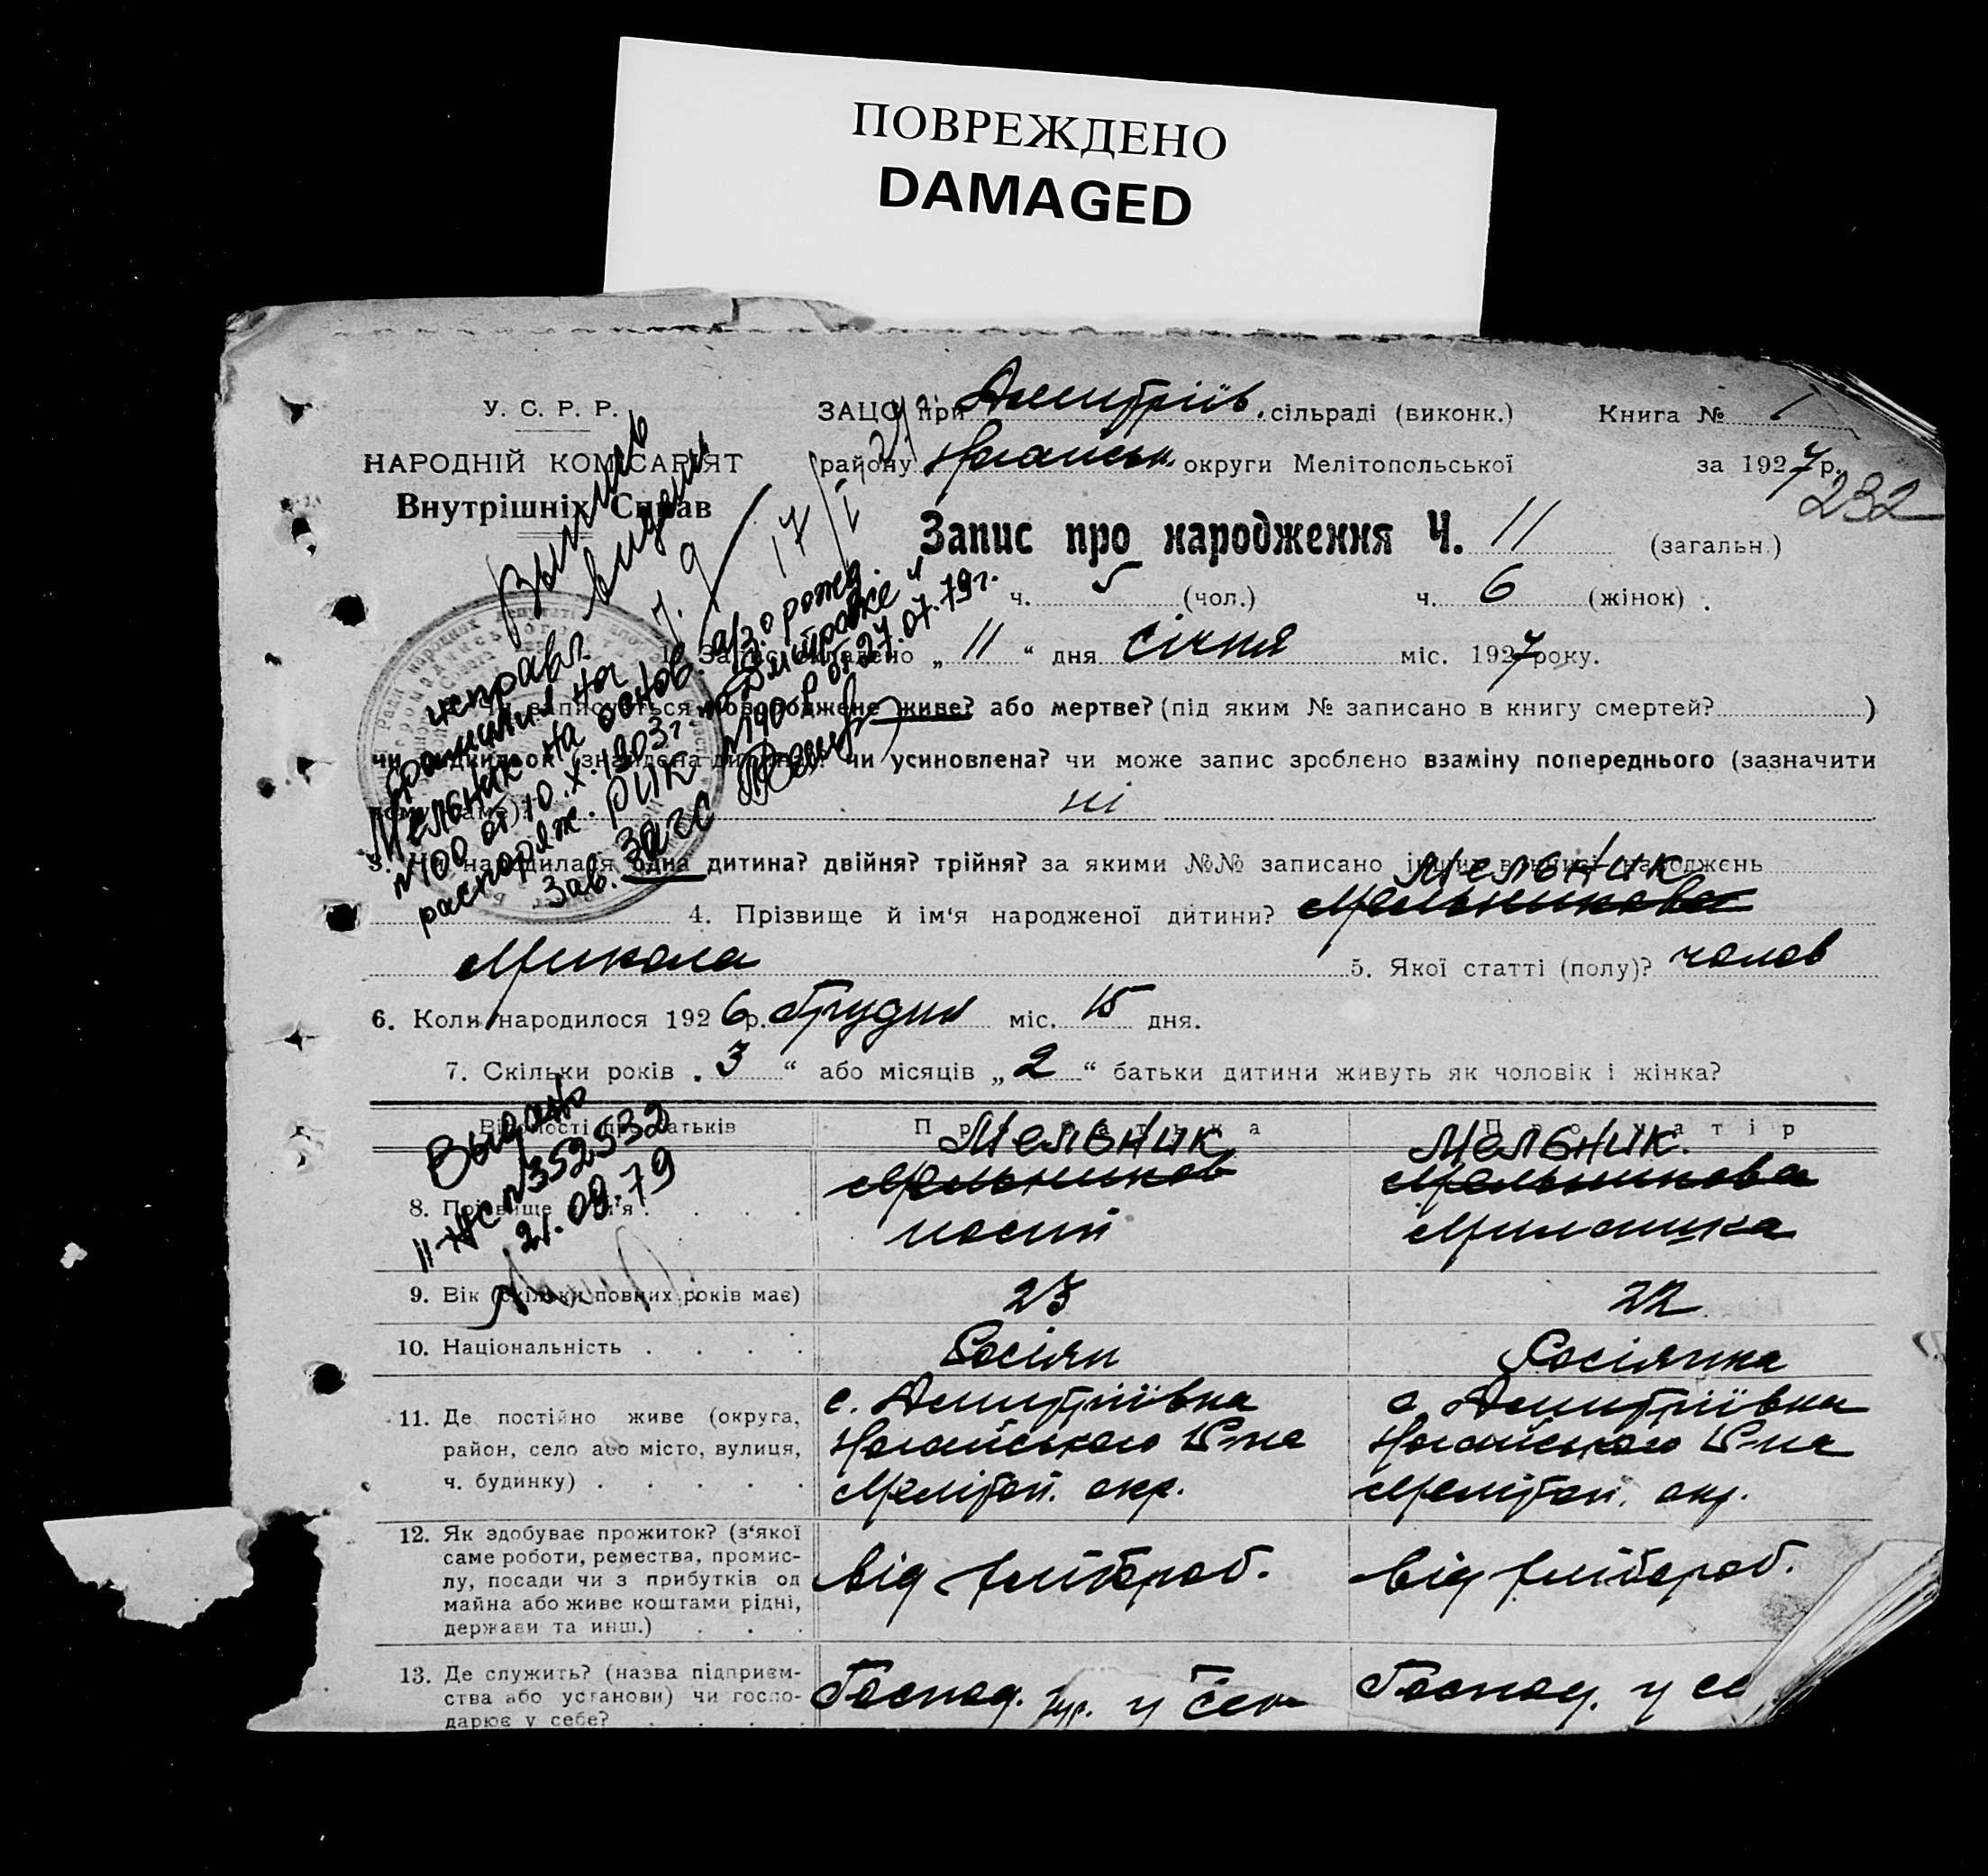 ПОВРЕЖДЕНО
DAMAGED
У. С. Р. Р.
НАРОДНІЙ КОМІСАРІЯТ
Внутрішніх Справ
ЗАЦС при Дмитріїв. сільраді (виконк.) Книга № 1
району Ногайськ. округи Мелітопольської за 1927 р.
232
Запис про народження Ч. 11 (загальн.)
ч. 5 (чол.) ч. 6 (жінок)
1. Запис складено „ 11 “ дня січня міс. 1927 року.
записується новороджене живе? або мертве? (під яким № записано в книгу смертей? )
чи підкидьок (знайдена дитина)? чи усиновлена? чи може запис зроблено взаміну попереднього (зазначити
ні
3. народилася одна дитина? двійня? трійня? за якими №№ записано інших в книзі народжень
Мельник
4. Прізвище й ім‘я народженої дитини? Мельникова
Микола 5. Якої статті (полу)? чолов
6. Коли народилося 1926 р. Грудня міс. 15 дня.
7. Скільки років „ 3 “ або місяців „ 2 “ батьки дитини живуть як чоловік і жінка?
исправл.
фамилия на
Мельник на основ. а/з. о рожд.
№400 от 10.X.1903г по Дмитровке и
распоряж. РИК №190-р от 27.07.79г.
Зав. Загс
Відомості про батьків Про батька Про матір
Мельник Мельник.
Мельников Мельникова
8. Прізвище й ім‘я
9. Вік (скільки повних років має) 23 22
10. Національність Росіян Росіянка
11. Де постійно живе (округа, район, село або місто, вулиця, ч. будинку)
с. Дмитріївка с. Дмитріївка
Ногайського Р-на Ногайського Р-на
Меліtоп. окр. Меліtоп. окр.
12. Як здобуває прожиток? (з‘якої
саме роботи, ремества, промис-
лу, посади чи з прибутків од
майна або живе коштами рідні,
держави та инш.)
від хлібороб. від хлібороб.
13. Де служить? (назва підприєм-
ства або установи) чи госпо-
дарює у себе?
Господ. у Господ. у се
Выдано
II-ЖС №352532
21.09.79